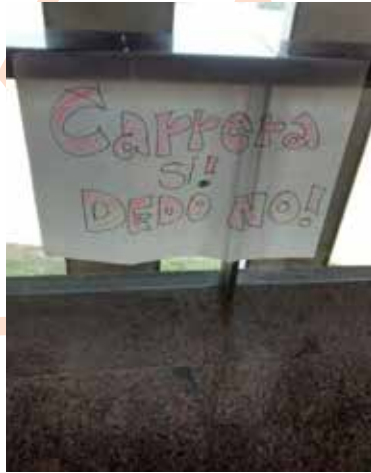 Carrera
SI!
DEDO NO!